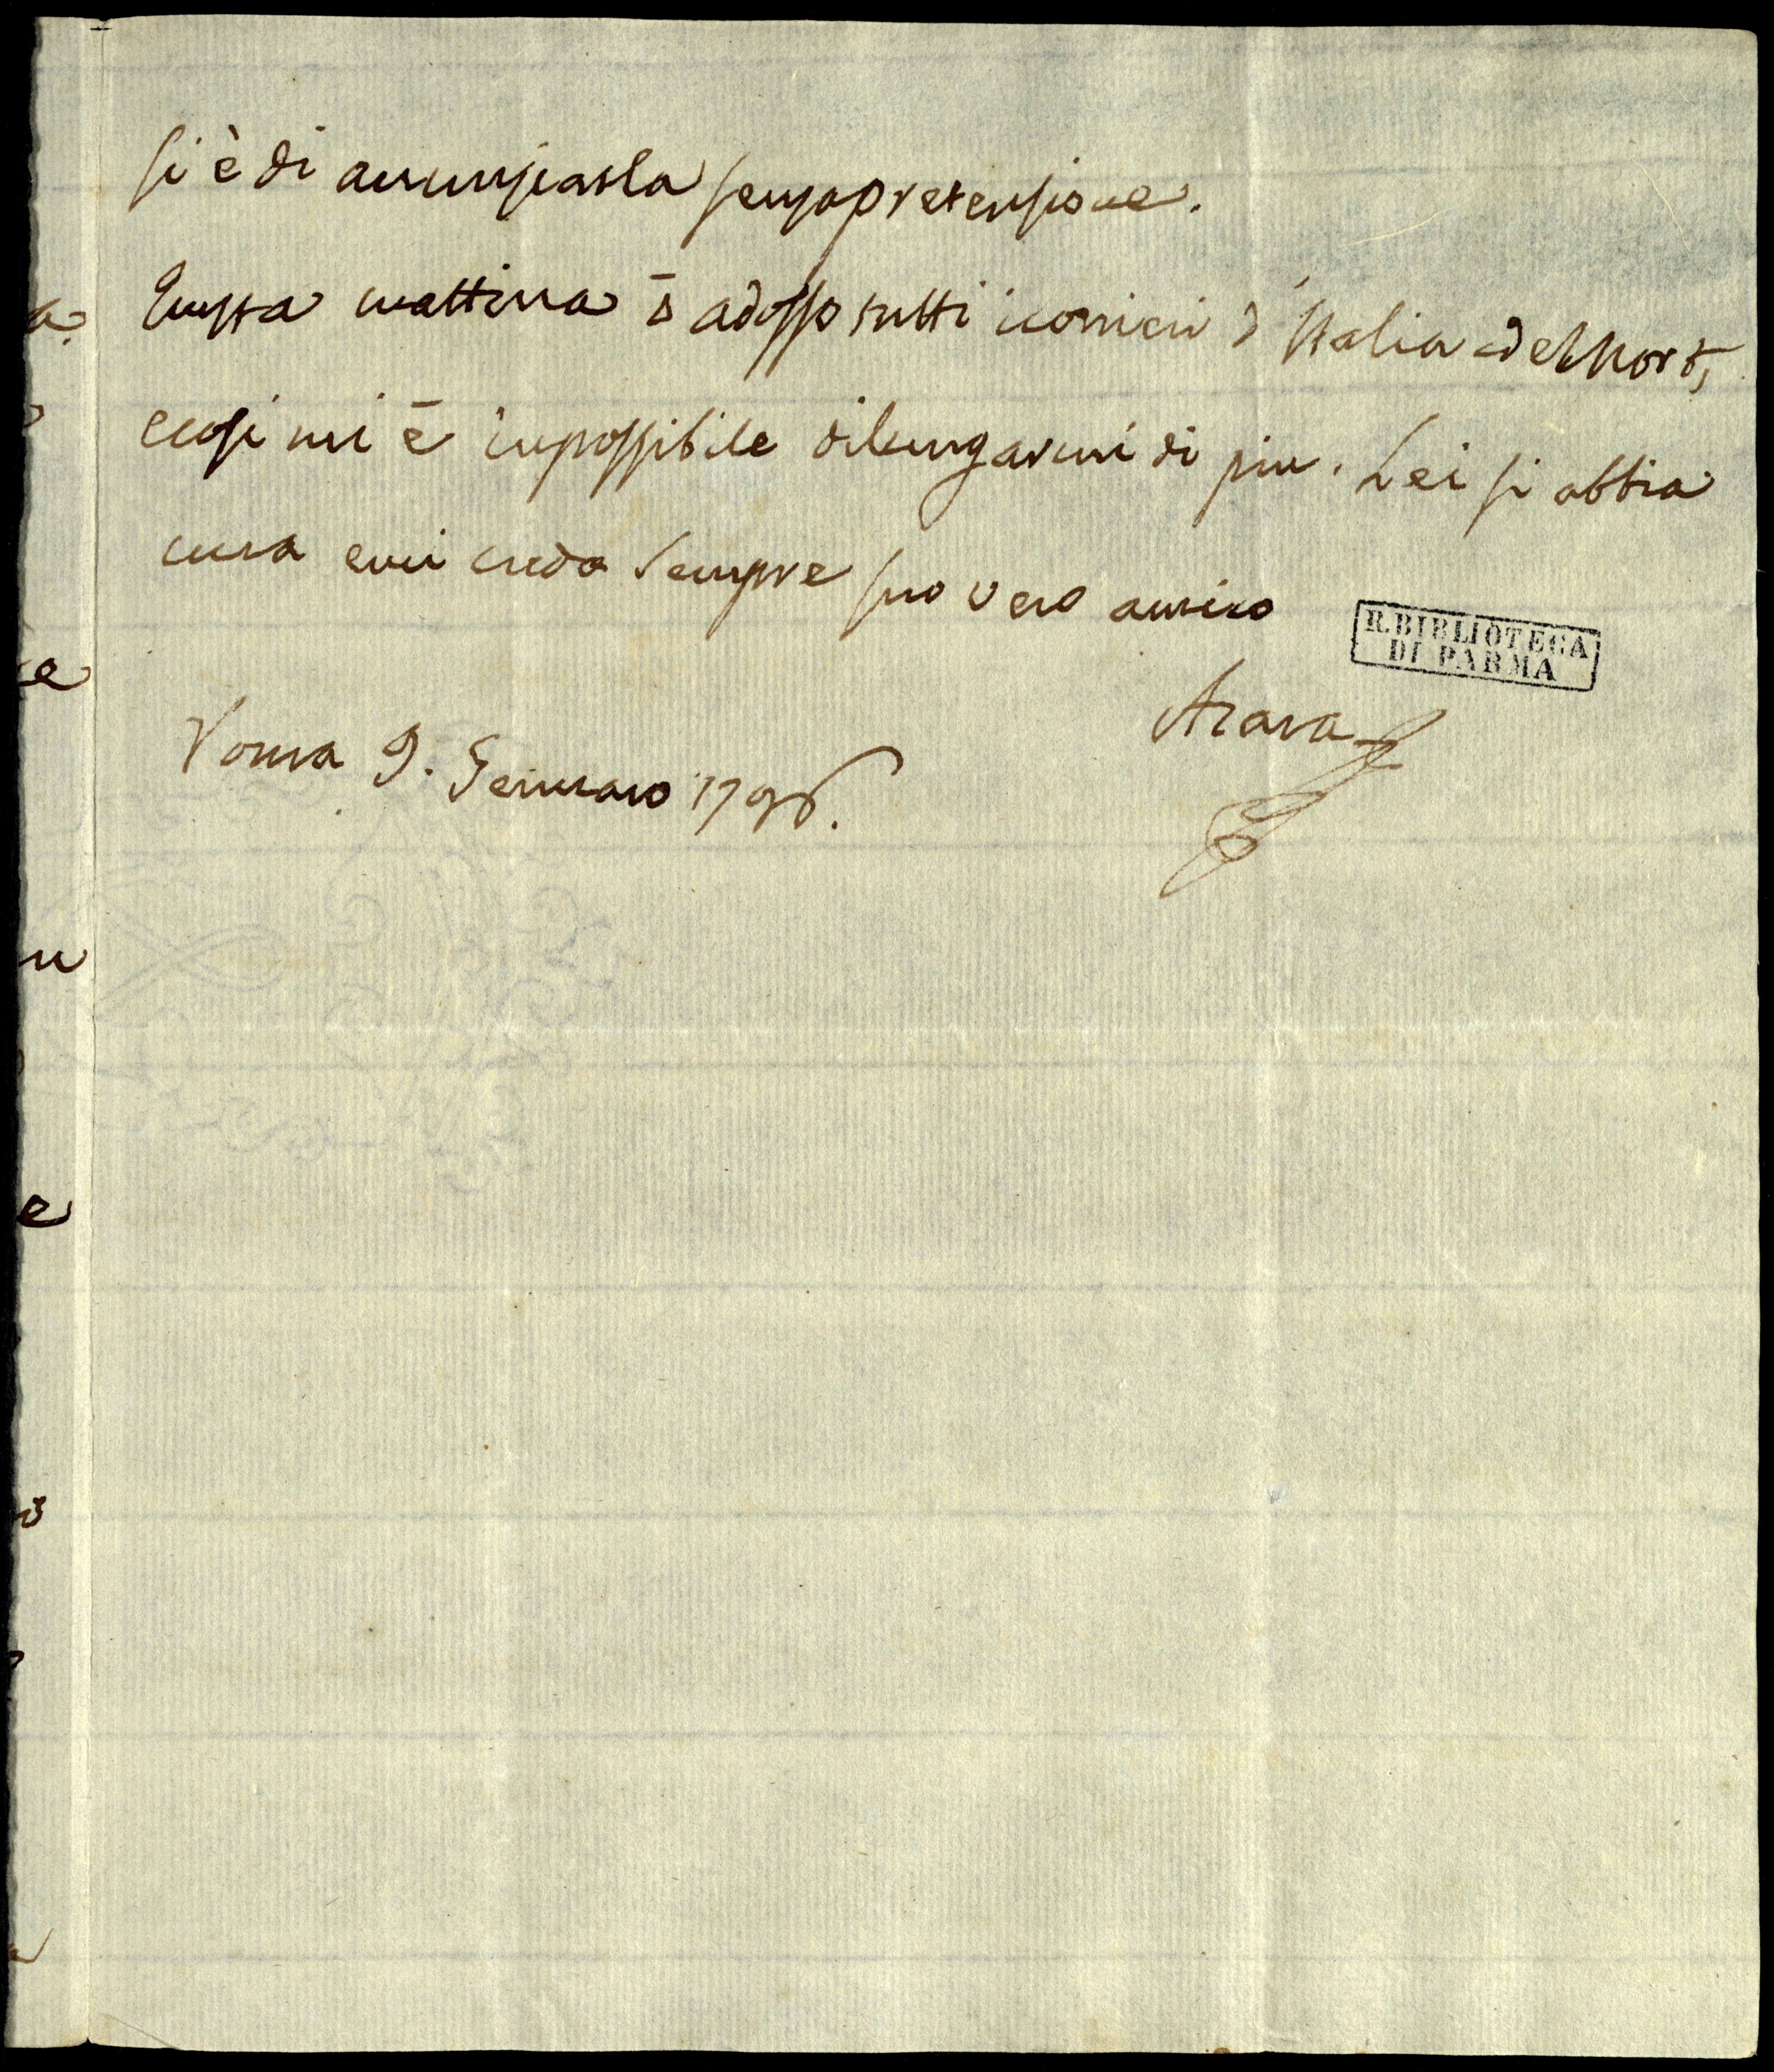 si è di anunziarla senza pretensione.
Questa mattina ò adosso tutti i corrieri d'Italia e del Nort,
e cosi mi è impossibile dilungarmi di piu. Lei si abbia
cura e mi creda sempre suo vero amico
R. BIBLIOTECA
DI PARMA
Azara
Roma 9. Gennaro 1796.